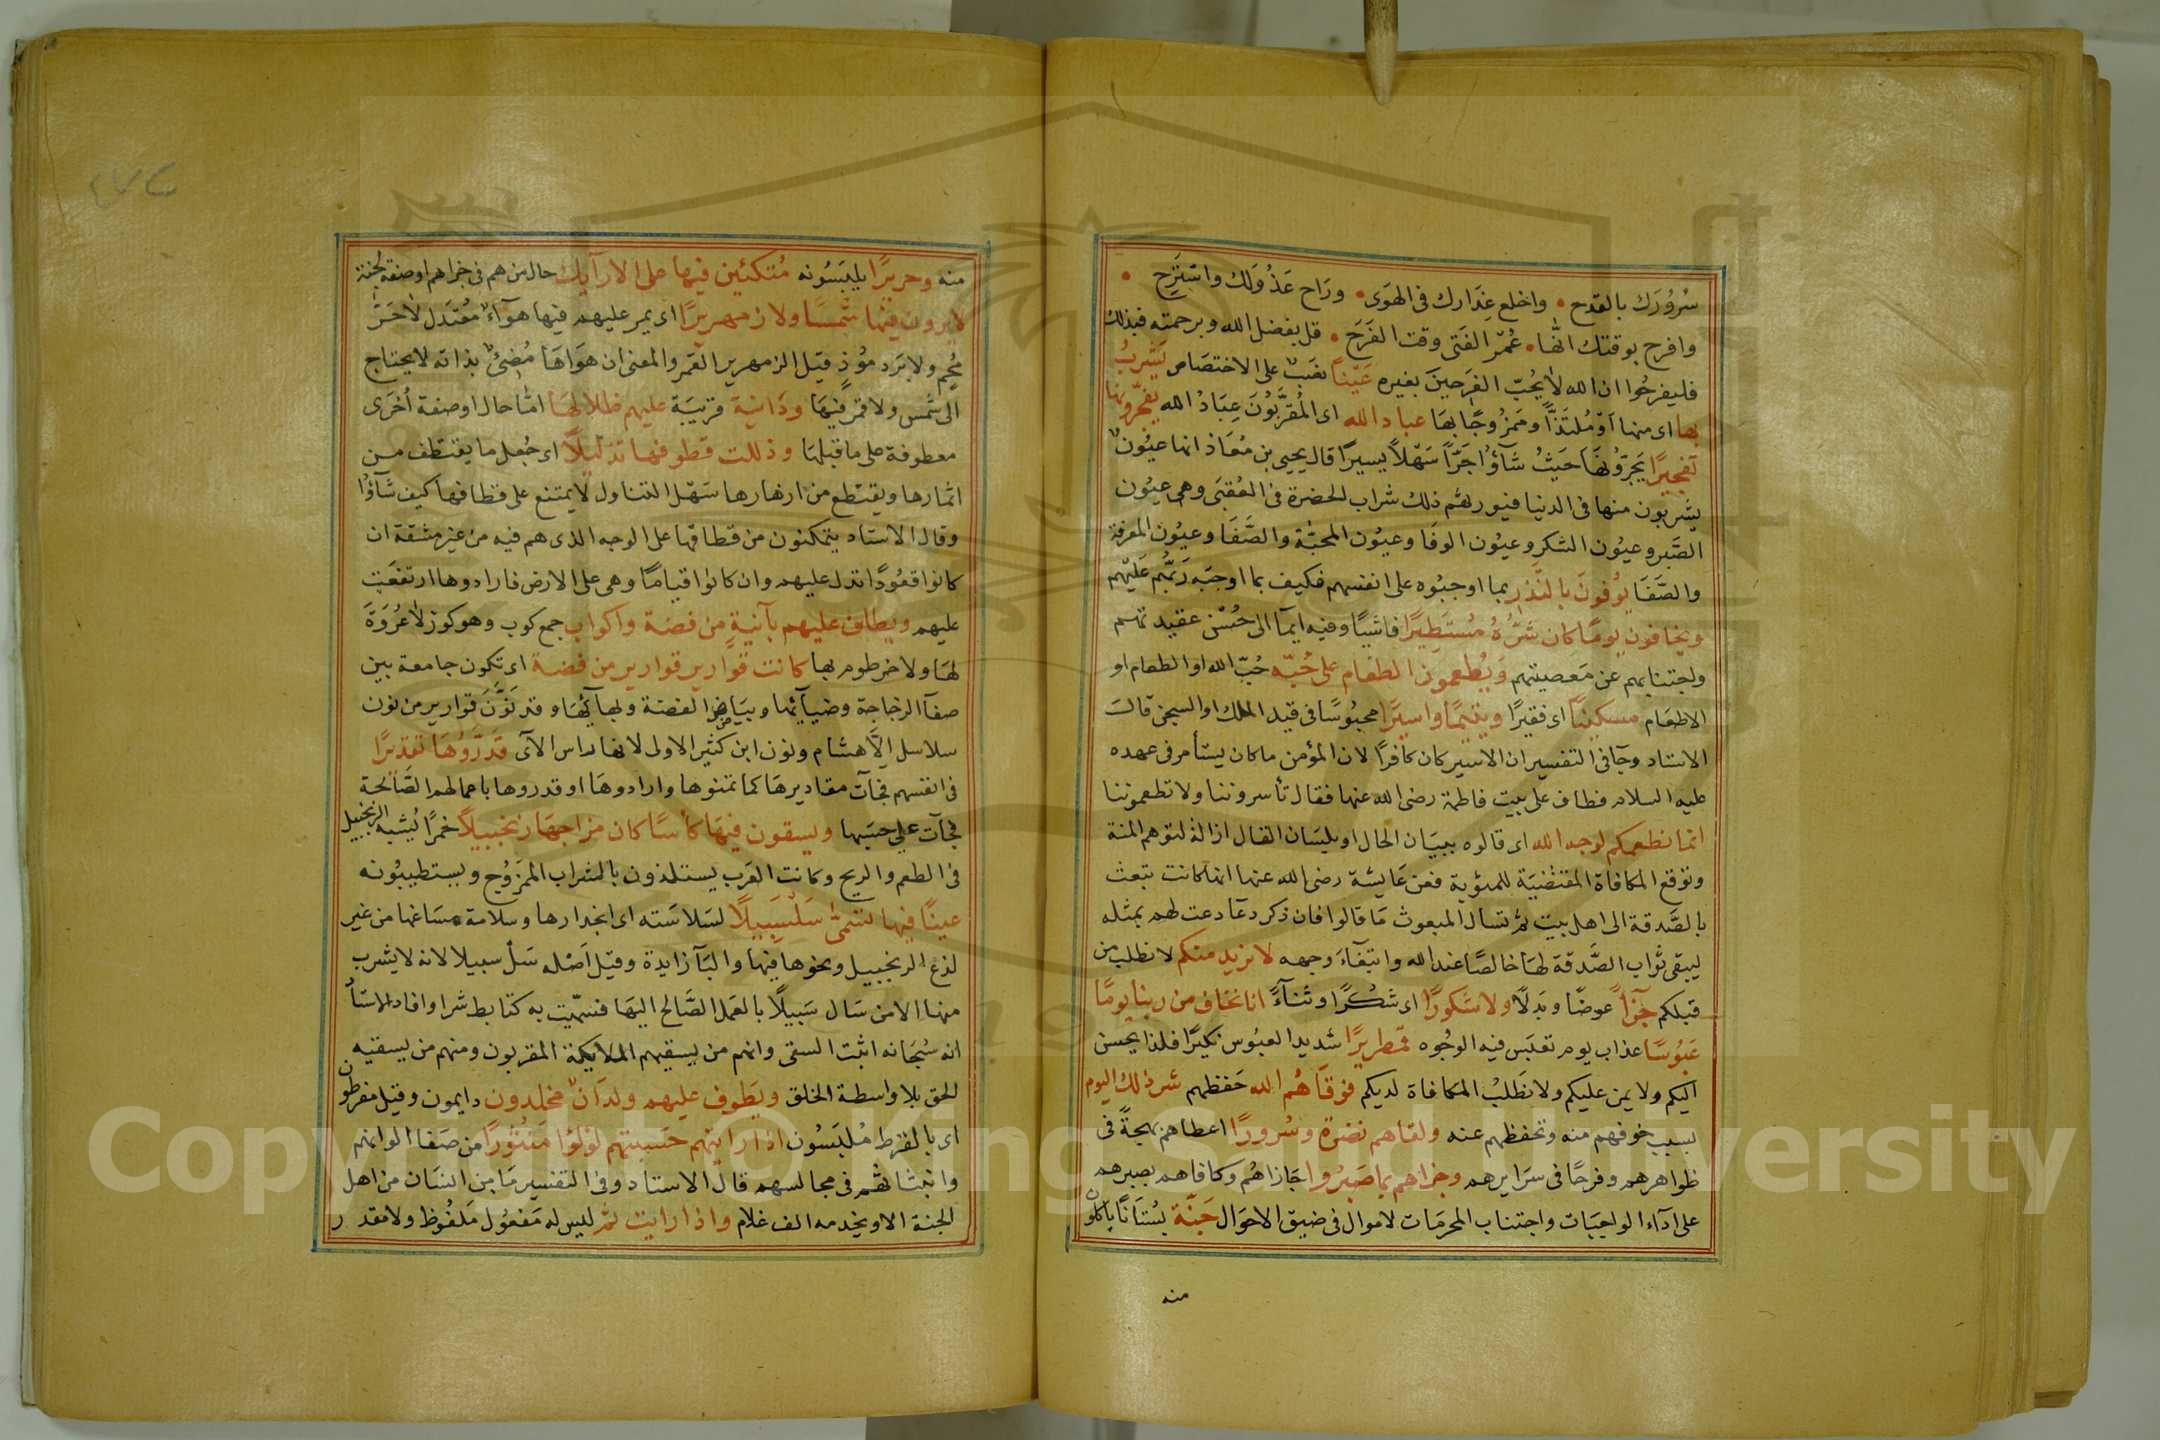 سُرُورَك بالقدح • واخلع عِذَارك فى الهَوَى • ورَاح عَذُولَك واسْتَرِح •
وافرح بوقتك انها • عُمْر الفَتى وقت الفَرَح • قل بفضل الله وبرحمته فبذلك
فليفرحُوا ان الله لا يُحِبّ الفَرِحِينَ بغيره عَيْناً نصَبٌ على الاختصَاص يَشْرَبُ
بها اى منها اَوْ مُلتَذًّا ومَمزُوجًا بهَا عباد الله اى المُقرَّبُونَ عِبَادُ الله يفجّرونها
تَفجِيرًا يَجرّونهَا حَيْثُ شَآؤُا جَرًّا سَهْلاً يسيرًا قال يحيى بن مُعَاذ انها عيُونٌ
يشربون منها فى الدنيا فيورثهم ذلك شراب الحضرة فى العُقبَى وهى عيُون
الصَّبر وعيُون الشكر وعيُون الوفَا وعيُون المحبّة والصَّفَا وعيُون المعرفة
والصَّفَا يوُفونَ بالنَّذْرِ بما اوجبُوه على انفسهم فكيف بما اوجبَه رَبُّهُم عَلَيْهِم
ويخافون يومًا كان شَرُّهُ مُسْتَطِيرًا فاشيًا وفيه ايمآ الى حُسْن عقيدتهم
واجتنابهم عن مَعصيتهم وَيُطْعِمونَ الطَّعَام على حُبّه حُبّ الله او الطعام او
الاطعَام مسكينًا اى فقيرًا ويتيمًا واسيرًا محبوُسًا فى قيد الملك او السجن قالَ
الاستاد وجآ فى التفسير ان الاسير كان كافرًا لان المؤمن ما كان يستأسر فى عهده
عليه السلام فطاف على بيت فاطمة رضى الله عنها فقال تأسروننا ولا تطعموننا
انما نطعمكم لوجه الله اى قالوه ببيَان الحال او بلسَان القال ازالة لتوهم المنة
وتوقع المكافاة المقتضيَة للمثوبة فعن عَايشة رضى الله عنها انها كانت تبعث
بالصَّدقة الى اهل بيت ثم تسال المبعوث مَا قالوا فان ذكر دعَآ دعت لهم بمثله
ليبقى ثواب الصَّدقة لهَا خالصًا عند الله وابتغَآءَ وجهه لا نريد منكم لا نطلب من
قبلكم جَزَآءً عوضًا وبَدلًا ولا شكورًا اى شُكْرًا وثنآءً انا نخاف من ربنا يومًا
عَبُوسًا عذاب يوم تعبَس فيه الوجُوه قمطريرًا شديد العبُوس نكيرًا فلذا يحسن
اليكم ولا يمن عليكم ولا نَطلبُ المكافاة لديكم فوَقَاهُم الله حَفظهم شر ذلك اليوم
بسبب خوفهم منه وتحفظهم عنه ولقاهم نضرَة وسُرورًا اعطاهم بَهجةً فى
ظواهرهم وفرحًا فى سَرايرهم وجزاهم بما صَبَرُوا جَازاهُم وكافاهم بصبرهم
على ادآء الواجبَات واجتناب المحرمَات لاموال فى ضيق الاحوَال جَنّة بُستَانًا ياكلون
منه
منه وحريرًا يلبَسُونه مُتكئين فيها على الارآيك حال من هم فى جزاهم او صفة لجنة
لا يرون فيها شَمسًا ولا زمهريرًا اى يمر عليهم فيها هوآءٌ مُعتَدل لا حَرٌّ
مُحم ولا بَرد مؤذٍ قيل الزمهرير القمر والمعنى ان هوَاهَا مُضئٌ بذاته لا يحتاج
الى شمس ولا قمر فيهَا ودَانيَة قريبَة عليهم ظلالهَا امّا حال او صفة اُخرَى
معطوفة على ما قبلهَا وذللت قطوفها تذليلاً اى جُعِل ما يقتطف من
اثمارها ويقتطع من ازهارها سَهْل التناول لا يمتنع على قطافها كيف شَآؤُا
وقال الاستاد يتمكنون من قطافها على الوجه الذى هم فيه من غير مشقّة ان
كانوا قعُودًا تدلى عليهم وان كانوا قيامًا وهى على الارض فارادوها ارتفعَت
عليهم ويطاف عليهم بآنيةٍ من فضة واكواب جمع كوب وهو كوز لا عُرْوَةَ
لهَا ولا خرطوم بها كانت قوارير قوارير من فضة اى تكون جامعة بين
صفآ الزجاجة وضيآئها وبيَاض الفضة وبهآئِها وقد نَوَّنَ قوارير من نون
سلاسل الاّ هشام ونون ابن كثير الاولى لانها راس الآى قَدَّرُوهَا تقديرًا
فى انفسهم فجآت مقاديرهَا كما تمنوها وارادوهَا او قدروها باعمالهم الصَّالحة
فجآت على حسبها ويسقون فيهَا كأسًا كان مزاجهَا زنجبيلاً خمرًا يُشبه الزنجبيل
فى الطعم والريح وكانت العَرب يستلذون بالشراب الممزوُج ويستطيبُونه
عينًا فيها تسَمّى سَلْسَبِيلاً لسَلاسَته اى انحدارها وسلامة مسَاغها من غير
لذع الزنجبيل ونحوها فيها والبَآ زايدة وقيل اَصْله سَلْ سبيلا لانه لا يشرب
منها الا من سَال سَبيلًا بالعمل الصَّالح اليهَا فسمّيت به كتابط شرا وافاد الاستَاد
انه سُبحَانه اثبت السقى وانهم من يسقيهم الملايكة المقربون ومنهم من يسقيه
الحق بلا واسطة الخلق ويَطوف عليهم ولدَانٌ مخلدون دايمون وقيل مقرطون
اى بالقرط مُلبَسُون اذا رايتهم حَسبتهم لؤلؤًا مَنثورًا من صَفا الوانهم
وانبثاثهم فى مجالسهم قال الاستاد وفى التفسير مَا من انسَان من اهل
الجنة الا ويخدمه الف غلام واذا رايت ثَمّ ليس له مَفعُول مَلفُوظ ولا مقدر
Copyright © King Saud University